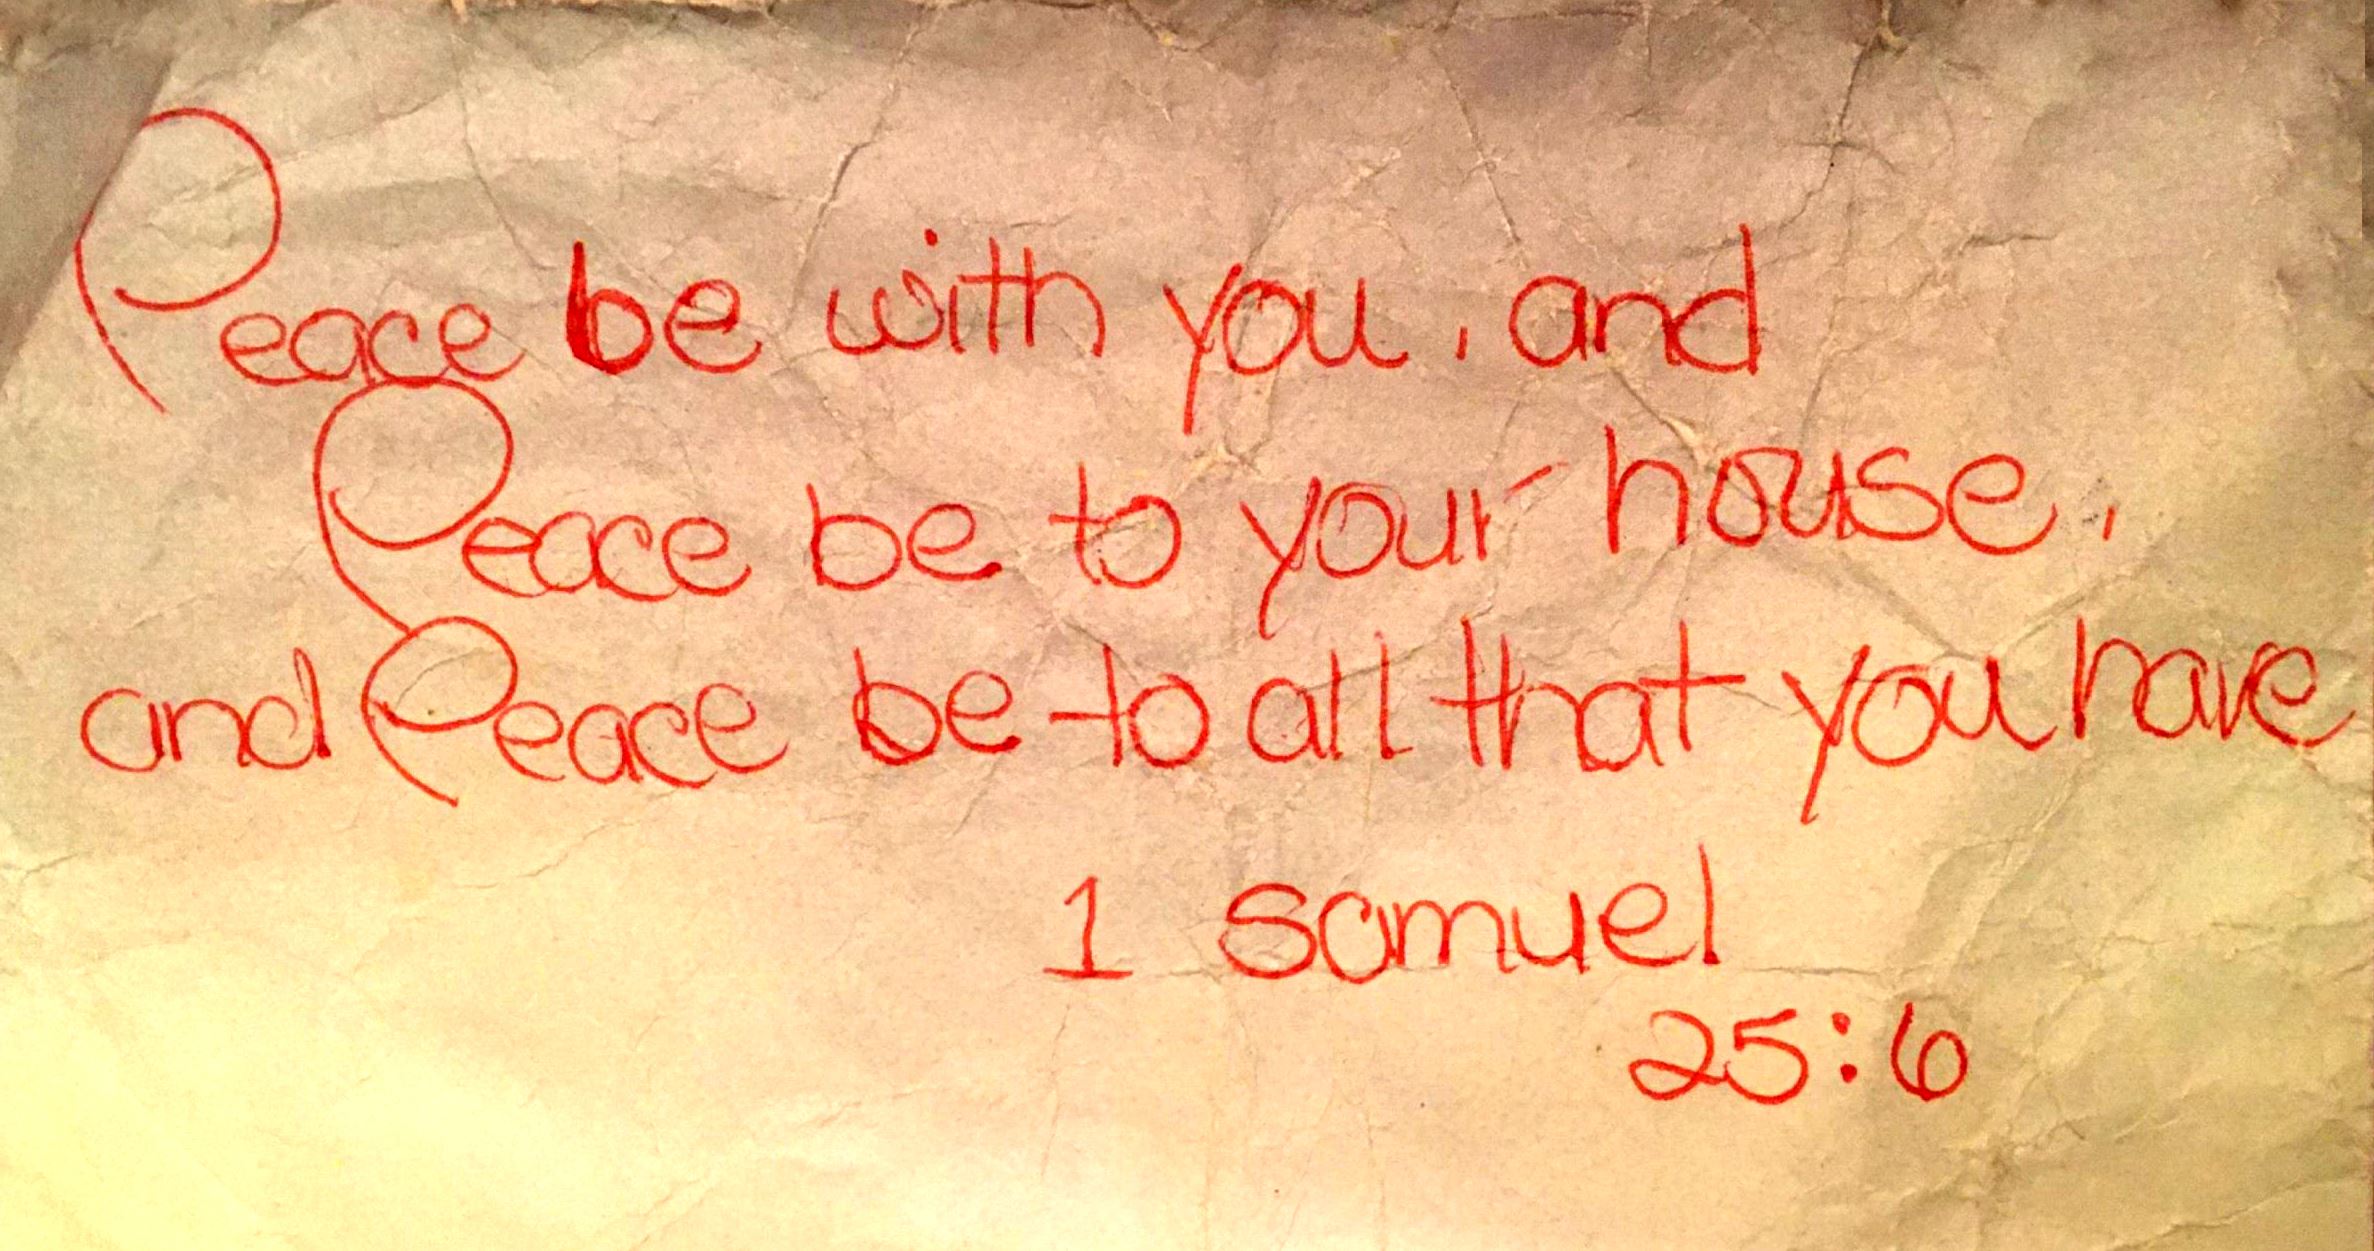 Peace be with you, and
Peace be to your house,
and Peace be to all that you have
1 samuel
25:6